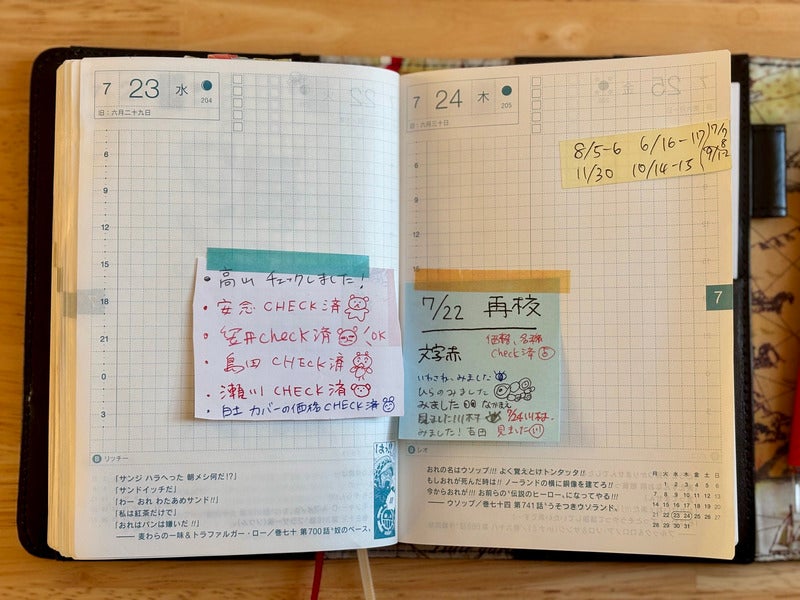 7 23 水 204
旧：六月二十九日
6
9
12
15
18
21
0
3
・高山 チェックしました！
・安念 CHECK済
・笠井check済 OK
・島田 CHECK済
・瀬川 CHECK済
・白土 カバーの価格CHECK済
B リッチー
「サンジ ハラへった 朝メシ何だ!?」
「サンドイッチだ」
「わー おれ わたあめサンド!!」
「私は紅茶だけで」
「おれはパンは嫌いだ!!」
── 麦わらの一味＆トラファルガー・ロー／巻七十 第700話“奴のペース”
7 24 木 205
旧：六月三十日
8/5-6 6/16-17
11/30 10/14-15
7/7
9/1-2
6
9
12
15
7
7/22 再校
文字赤
価格、名称
check済
いわさわ、みました
ひらのみました
みました なかまえ
見ました川村
7/24川村
みました！吉田 見ました
B レオ
おれの名はウソップ!!! よく覚えとけトンタッタ!!
もしおれが死んだ時は!! ノーランドの横に銅像を建てろ!!
今からおれが!!! お前らの“伝説のヒーロー”になってやる!!!
── ウソップ／巻七十四 第741話“うそつきウソランド”
月 火 水 木 金 土 日
1 2 3 4 5 6
7 8 9 10 11 12 13
14 15 16 17 18 19 20
21 22 23 24 25 26 27
28 29 30 31